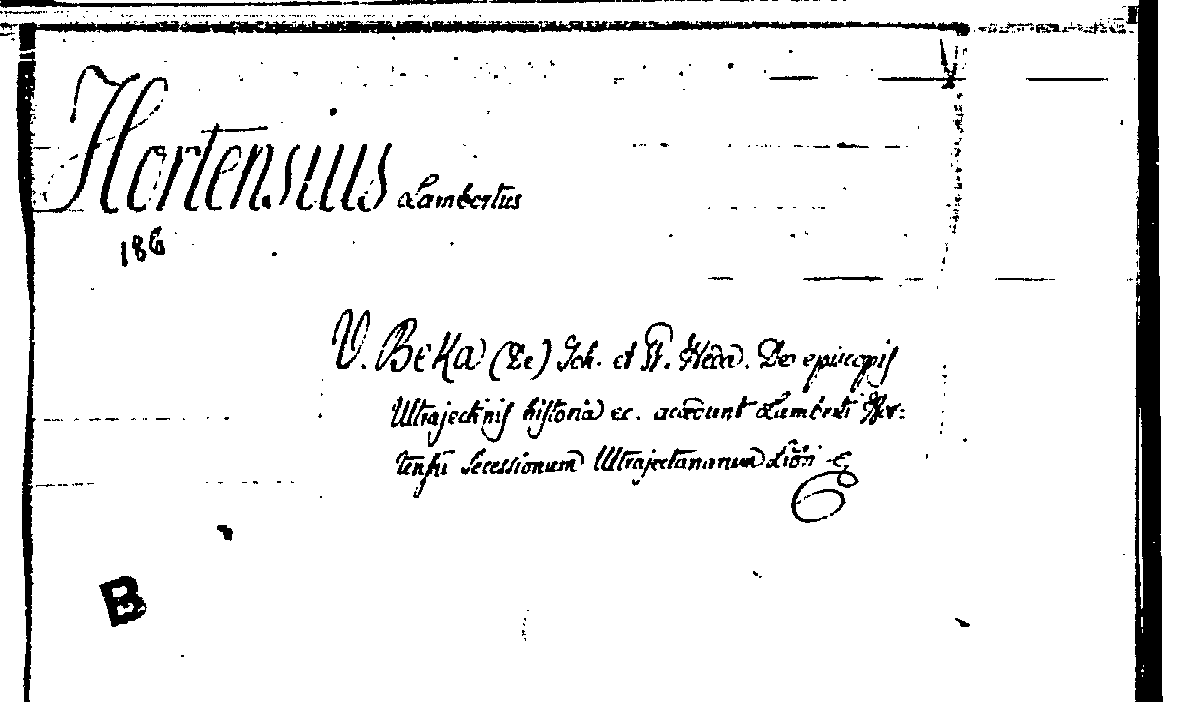 Hortensius Lambertus
186
V. Beka (De) Joh. et W. Heda. De episcopis
Ultrajectinis historia ec. accedunt Lamberti Hor:
tensii Secessionum Ultrajectanarum Libri &
B